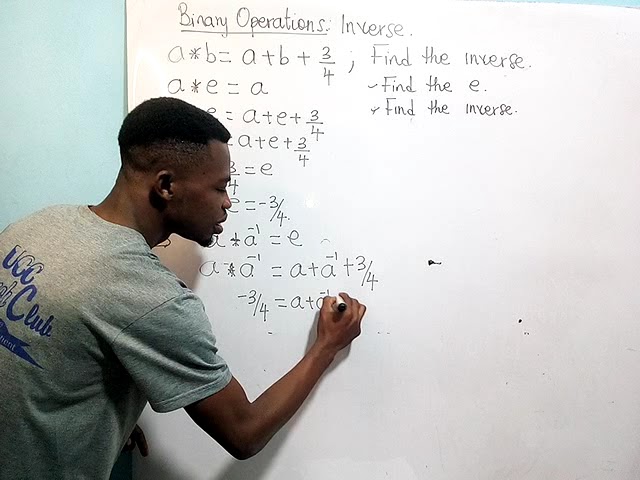 Binary Operations: Inverse.
a * b = a + b + 3/4 ; Find the inverse.
a * e = a
- Find the e.
e = a + e + 3/4
- Find the inverse.
= a + e + 3/4
3/4 = e
e = -3/4.
a * a⁻¹ = e
a * a⁻¹ = a + a⁻¹ + 3/4
-3/4 = a + a⁻¹
UCC
Club